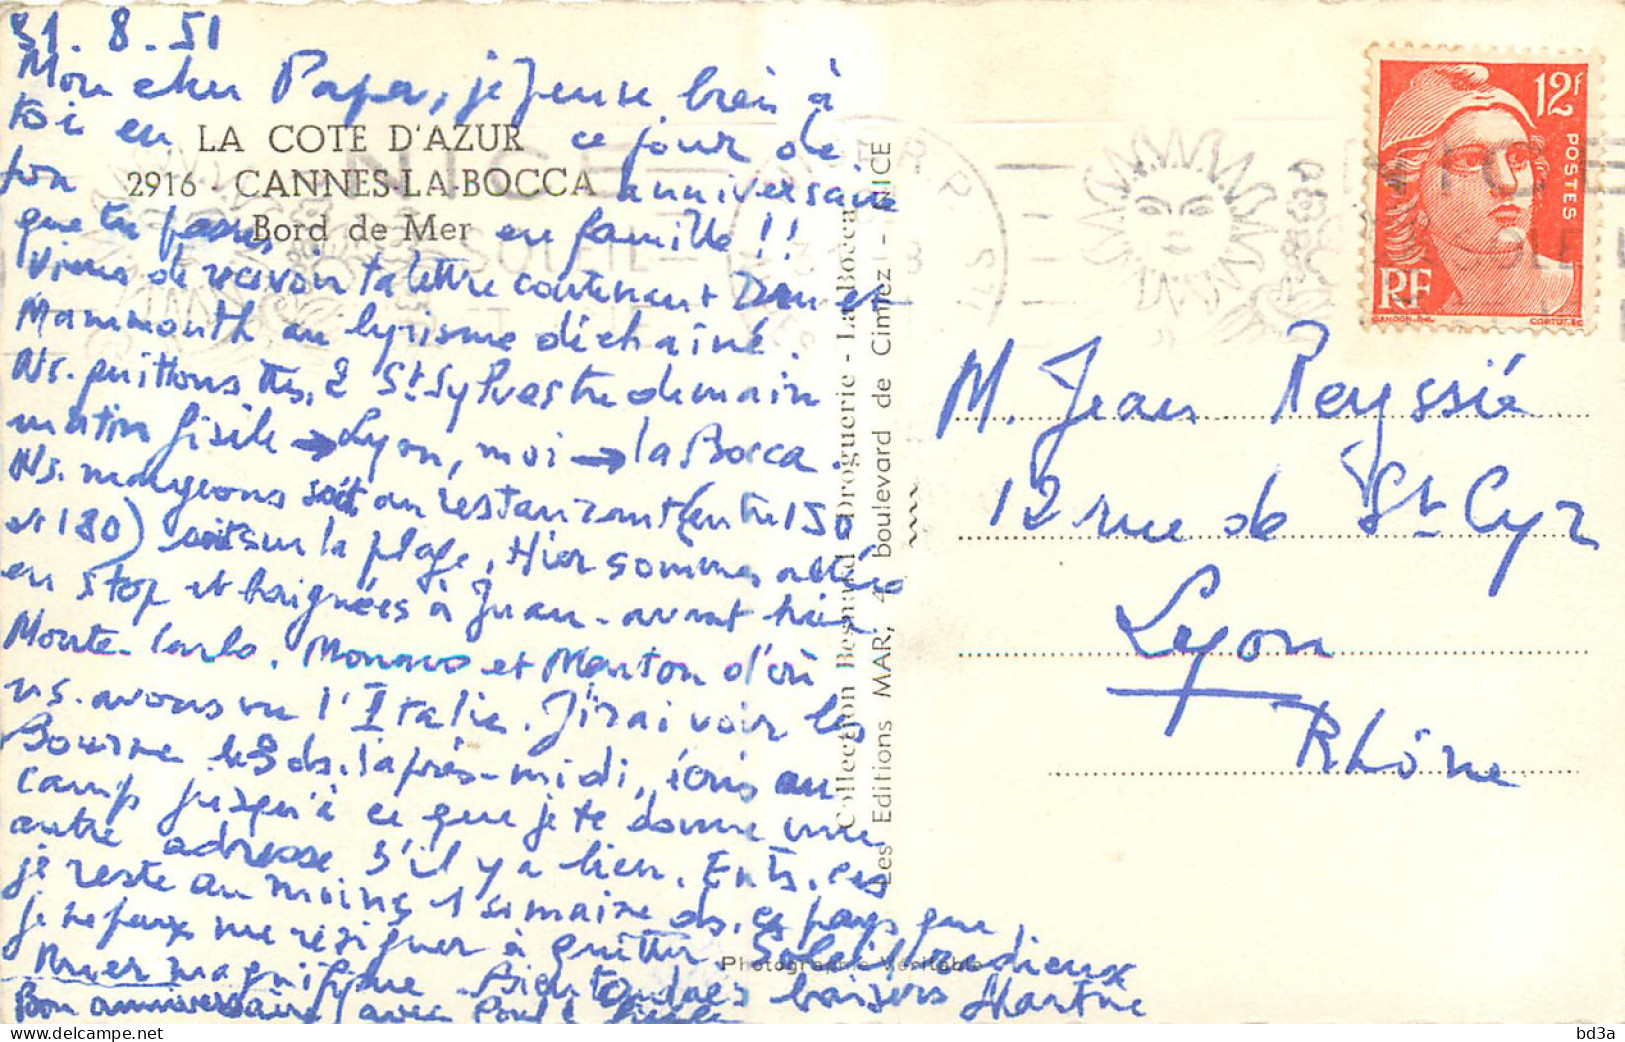 31.8.51
Mon cher Papa, je pense bien à
toi en ce jour de
ton anniversaire
que tu passes en famille !!
Viens de recevoir ta lettre contenant et
Mammouth au lyrisme déchaîné.
Ns. quittons tts. 2 St Sylvestre demain
matin Gisèle → Lyon, moi → la Bocca.
Ns. mangeons soit au restaurant (entre 150
et 180) soit sur la plage. Hier sommes allées
en stop et baignées à Juan - avant hier
Monte-Carlo, Monaco et Menton d'où
ns. avons vu l'Italie. J'irai voir les
le 3 ds. l'après-midi, écris au
camp jusqu'à ce que je te donne une
autre adresse s'il y a lieu. En ts. cas
je reste au moins 1 semaine ds. ce pays que
je ne peux me résigner à quitter. Soleil radieux
magnifique. Bien tendres baisers Martine
Bon anniversaire, avec
LA COTE D'AZUR
2916 - CANNES-LA-BOCCA
Bord de Mer
Collection Besnard Droguerie - La Bocca
Les Editions MAR, 4, boulevard de Cimiez - NICE
Photographie Véritable
NICE
SOLEIL
12f
POSTES
RF
M. Jean Reyssié
12 rue de St Cyr
Lyon
Rhône
bd3a